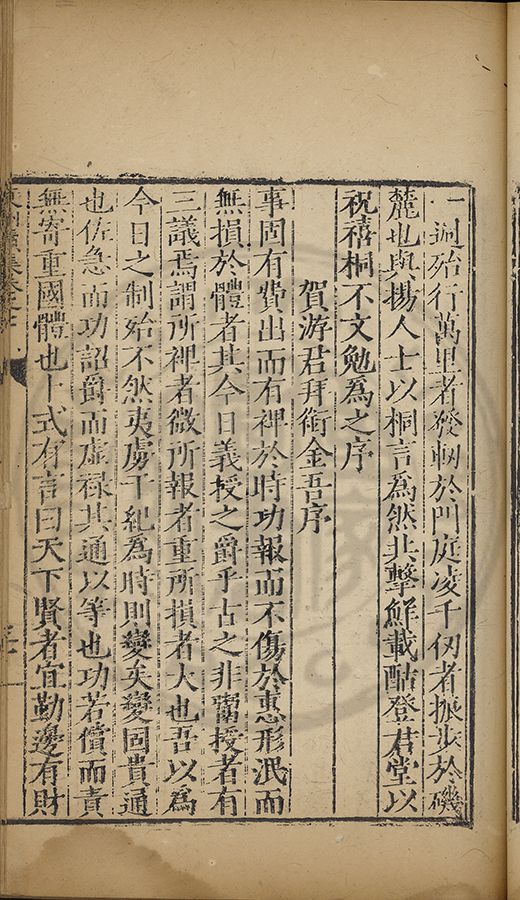 一過殆行萬里者發軔於門庭凌千仞者振步於磯
麓也與揚人士以桐言為然共擊鮮載酤登君堂以
祝禧桐不文勉為之序
賀游君拜銜金吾序
事固有費出而有裨於時功報而不傷於惠形泯而
無損於體者其今日義授之爵乎古之非鬻授者有
三議焉謂所裨者微所報者重所損者大也吾以為
今日之制殆不然夷虜干紀為時則變矣變固貴通
也佐急而功詔爵而虛祿其通以等也功若償而責
無寄重國體也卜式有言曰天下賢者宜勤邊有財